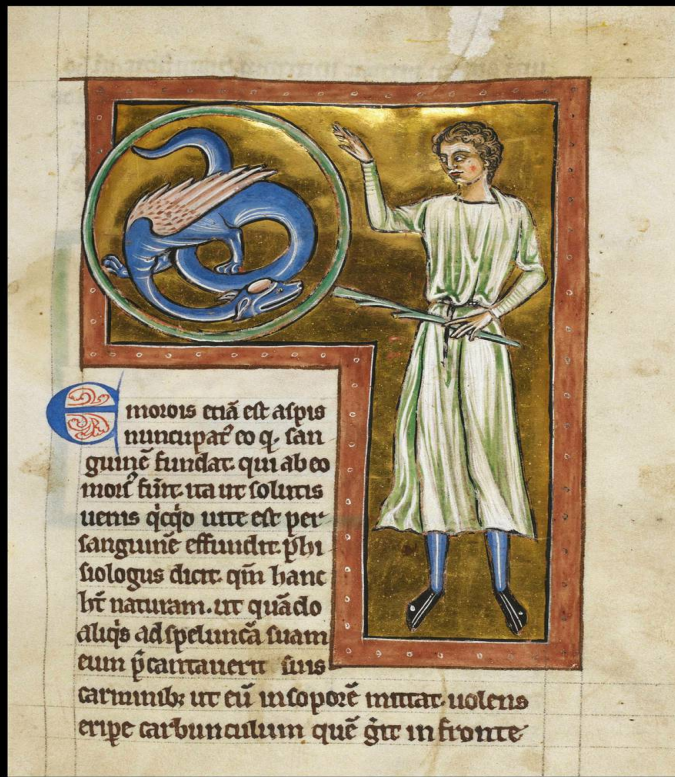 Emorois etiā est aspis
nuncupat᷒ eo q̇. san
guinē fundat. qui ab eo
mors᷒ fūit. ita ut solutis
uenis q̇cq̇d uite est per
sanguinē effundit. phi
siologus dicit. qm̄ hanc
ht̄ naturam. ut quādo
aliq̇s ad speluncā suam
eum p̄cantauerit suis
carminib; ut eū in soporē mittat. uolens
eripe carbunculum quē gͥt in fronte